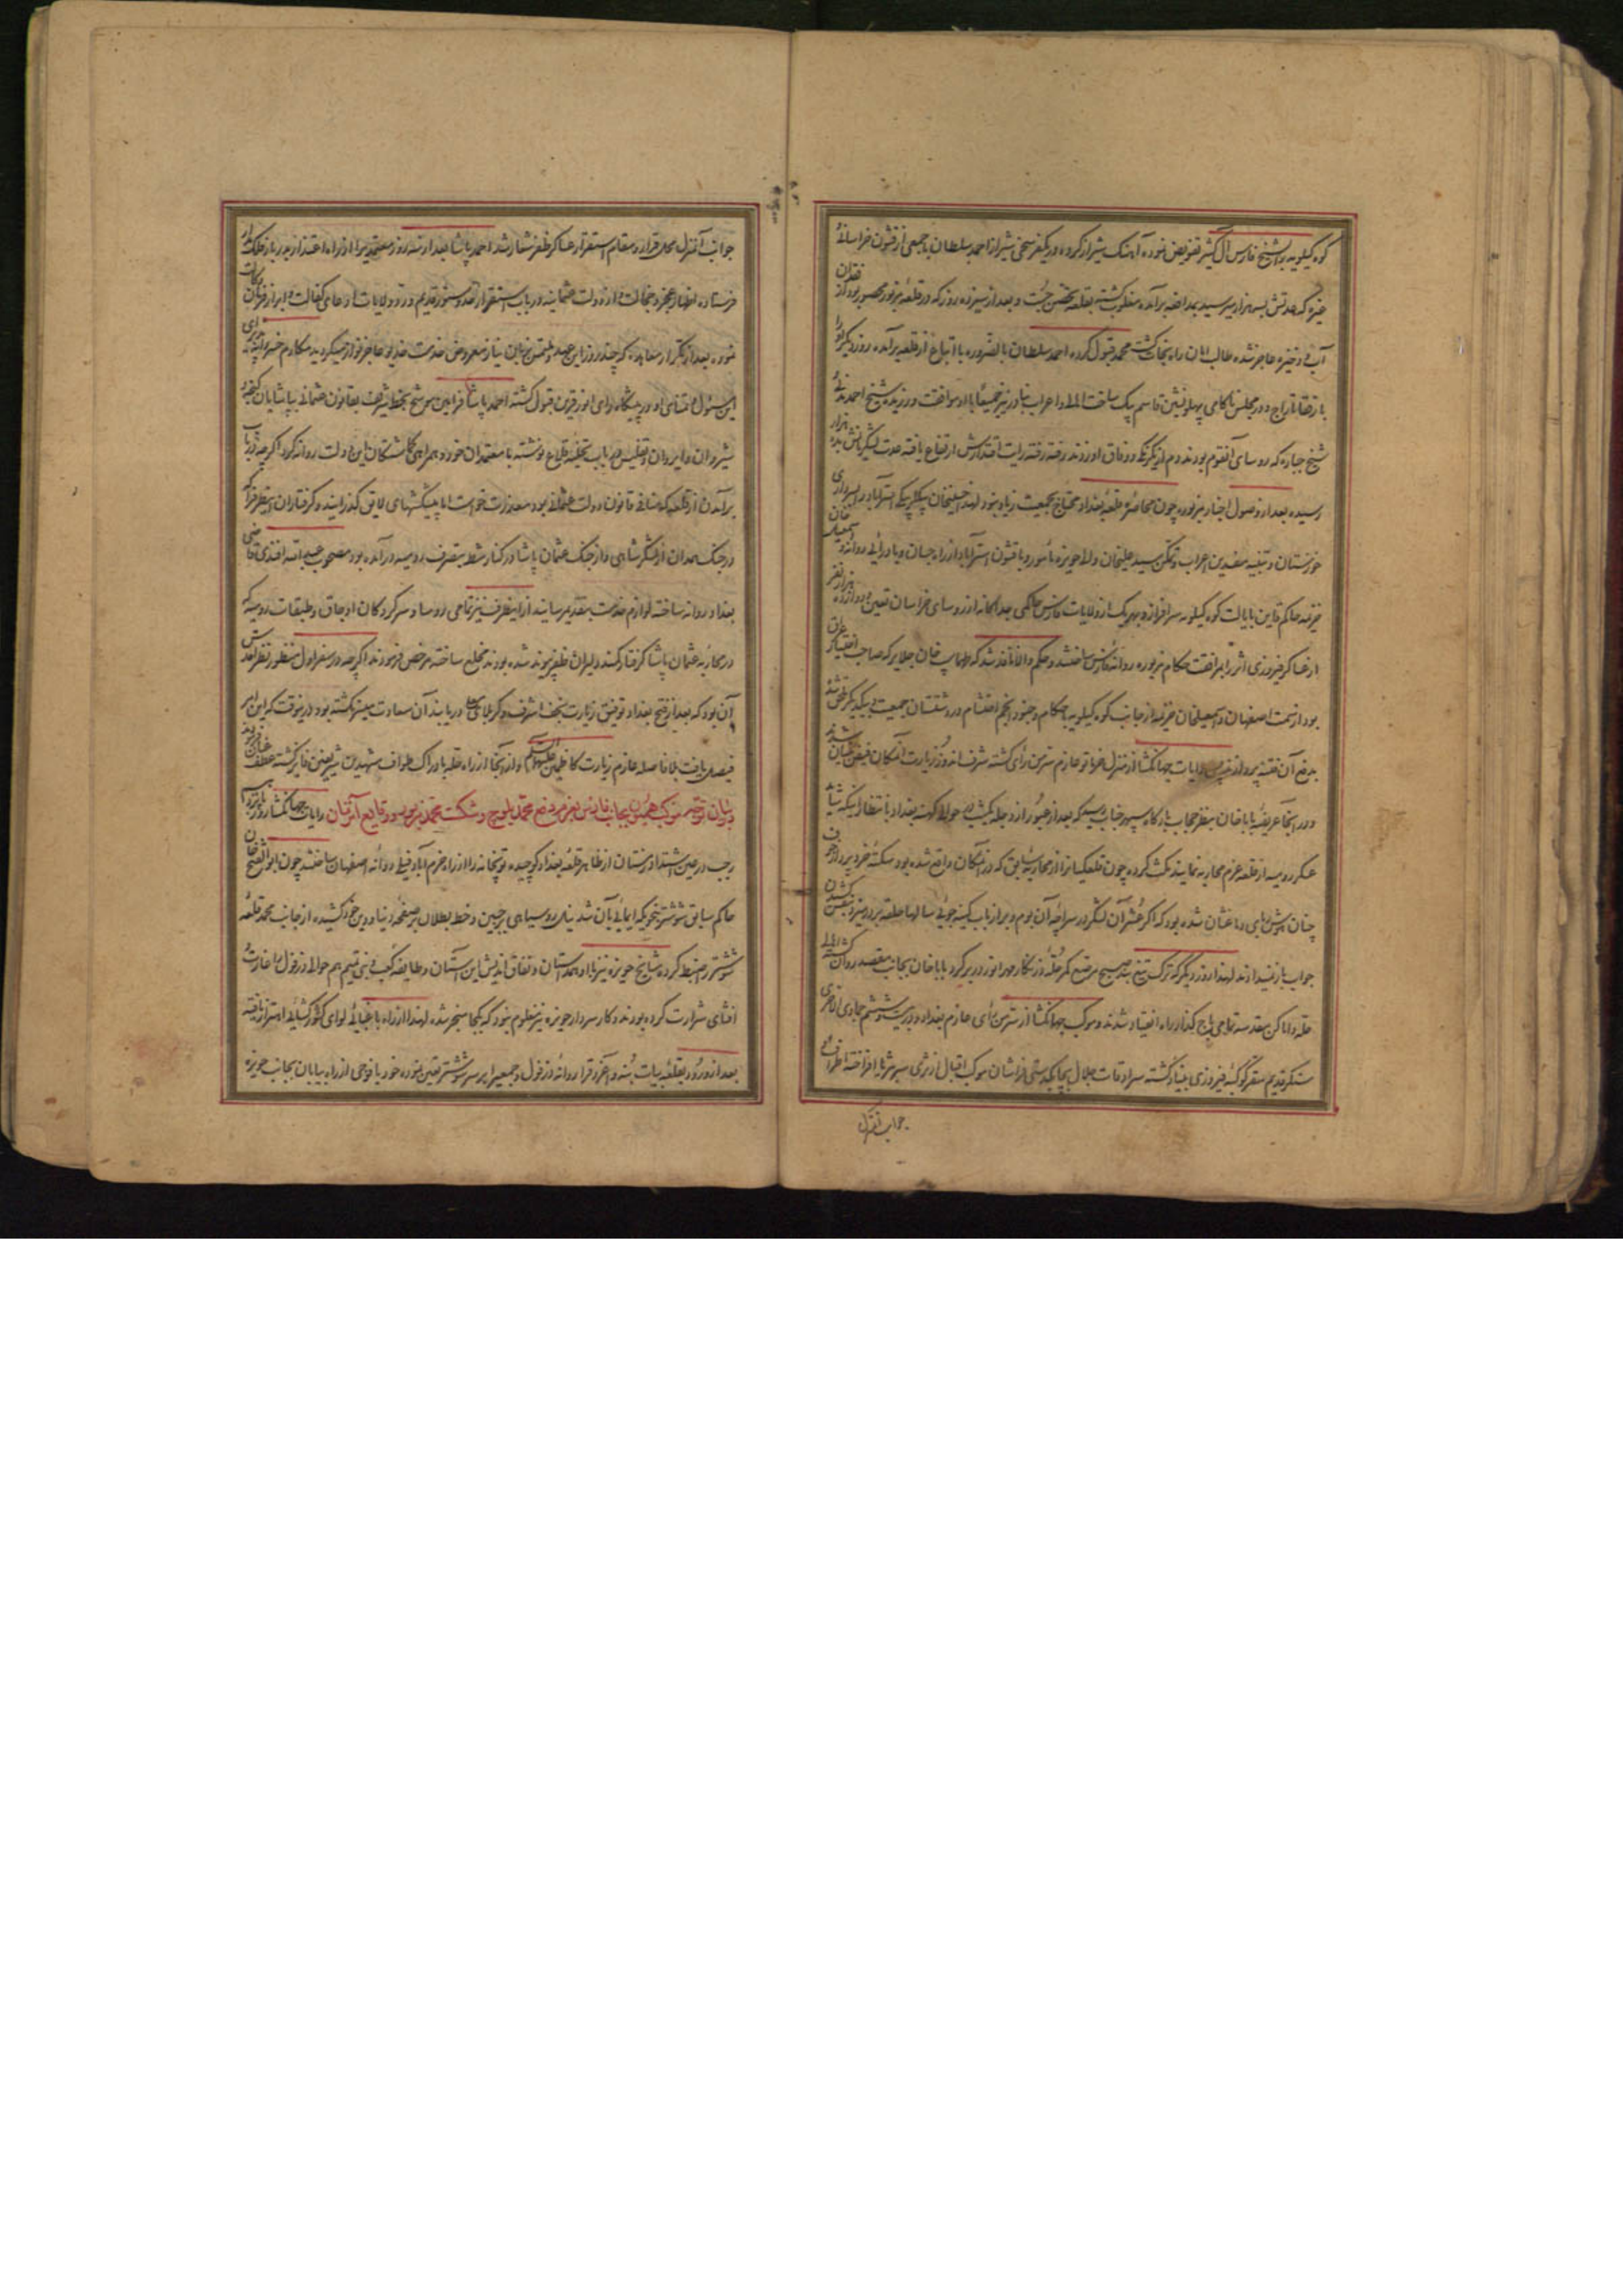 کوه کیلویه را بشیخ فارس آل کثیر تفویض نموده آهنک شیراز کرده در یکفرسخی شیراز احمد سلطان با جمعی از قشون خراسانی
که عدتش بسه هزار میرسید بمدافعه برآمده مغلوب کشته بقلعه تحصن جست و بعد از سیزده روز که در قلعه مزبور محصور بود از فقدان
آب و ذخیره عاجز شده طالب امان راه نجات کشت محمد قبول کرده احمد سلطان بالضروره با اتباع از قلعه برآمده روز دیکر او را
با رفقا تاراج و در مجلس ناکامی پهلونشین قاسم بیک ساخت الملط و اعراب بنادر نیز جمیعا با او موافقت ورزیده شیخ احمد مدنی
شیخ جباره که روسای آنقوم بودند دم از یکرنکی و وفاق او زدند رفته رفته رایت اقتدارش ارتفاع یافته عدت لشکریانش بده هزار
رسیده بعد از وصول اخبار مزبوره چون محاصره قلعه بغداد محتاج بجمعیت زیاد نبود لهذا حسینخان بیکلربیکی استرآباد را بسرداری
خوزستان و تنبیه مفسدین اعراب و تمکن سید علیخان والی حویزه مامور و با قشون استرآباد از راه جسان و بادرائی روانه و اسمعیل خان
خزیمه حاکم قاین بایالت کوه کیلویه سرافراز و بهر یک از ولایات فارس حاکمی جداکانه از روسای خراسان تعیین و دوازده هزار نفر
از عساکر فیروزی اثر را بمرافقت حکام مزبوره روانه فارس ساختند و حکم والا نافذ شد که طهماسب خان جلایر که صاحب اختیار عراق
بود از سمت اصفهان و اسمعیلخان خزیمه از جانب کوه کیلویه با حکام و جنود انجم احتشام در دشتستان جمعیت بیکدیکر ملحق شده
بدفع آن فتنه پردازند پس رایات جهانکشا از منزل خرماتو عازم سر من رای کشته شرف اندوز زیارت آنمکان فیض بنیان شدند
و در آنجا عریضه باباخان بنظر حجاب بارکاه سپهر جناب رسید که بعد از عبور از دجله یکشب در حوالی کهنه بغداد بانتظار اینکه شاید
عسکر رومیه از قلعه عزم محاربه نمایند مکث کرده چون قلعکیانرا از محاربه سابق که در آنمکان واقع شده بود سکته خرد پرداز خوف
چنان هوش ربای دماغشان شده بود که اکر عشر آن لشکر در سراچه آن بوم و بر از باب کینه جوئی سالها حلقه بر در میزد بنفس کشیدن
جواب باز نمیدادند لهذا روز دیکر که ترک تیغ بند صبح مرصع کمر حله زرنکار مهر انور در بر کرد باباخان بجانب مقصد روان کشته اهالی
حله و اماکن مقدسه تمامی باج کذار راه انقیاد شدند و موکب جهانکشا از سر من رای عازم بغداد و در بیست و ششم جمادی الاخری
سنکر قدیم مقر کوکبه فیروزی بنیاد کشته سرادقات جلال بچابکدستی فراشان موکب اقبال از ثری سر بثریا افراخته اطراف و
جوانب آنمنزل
جوانب آنمنزل محل قرار و مقام استقرار عساکر ظفر شعار شد احمد پاشا بعد از سه روز معتمدیرا از راه اعتذار بدربار فلک مدار
فرستاده اظهار عجز و خجالت و از دولت عثمانیه در باب استقرار حدود سنور قدیم و رد ولایات ادعای کفالت و ابراز مراتب
نموده بعد از تکرار معاهده که چند روز این عهد و ملتمس بزبان نیاز معروض خدمت خدیو عاجز نواز میکردید مکارم خسروانه پذیرای
این مسئول متمنای او در پیشکاه رای انور قرین قبول کشته احمد پاشا فرامین موشح بخط شریف بقانون عثمانی بپاشایان کنجه و
شیروان و ایروان و تفلیس در باب تخلیه قلاع نوشته با معتمدان خود و همراهی کماشتکان این دولت روانه کرد اکرچه در باب
برآمدن از قلعه که منافی قانون دولت عثمانی بود معذرت خواست اما پیشکشهای لایق کذرانید و کرفتاران اینطرف را که
در جنک همدان از لشکر شاهی و از جنک عثمان پاشا در کنار شط بتصرف رومیه درآمده بود مصحوب عبدالله افندی قاضی
بغداد روانه ساخته لوازم خدمت بتقدیم رسانید از اینطرف نیز تمامی روسا و سرکردکان اوجاق و طبقات رومیه که
در محاربه عثمان پاشا کرفتار کمند دلیران ظفر پیوند شده بودند مخلع ساخته مرخص فرمودند اکرچه در سفر اول منظور نظر اقدس
آن بود که بعد از فتح بغداد توفیق زیارت نجف اشرف و کربلای معلی دریابند آن سعادت میسر نکشته بود در نیوقت که این امر
فیصل یافت بلا فاصله عازم زیارت کاظمین علیهما السلام و از آنجا از راه حله بادراک طواف مشهدین شریفین فایز کشته عطف عنان فرمودند
در بیان توجه موکب همیون بجانب فارس بعزم دفع محمد بلوچ و شکست محمد مزبور و وقایع آنزمان رایات جهانکشا روز
رجب در عین اشتداد زمستان از ظاهر قلعه بغداد کوچیده توپخانه را از راه خرم آباد فیلی روانه اصفهان ساختند چون ابوالفتح خان
حاکم سابق شوشتر بنحویکه ایمائی بآن شد نیل روسیاهی بر جبین و خط بطلان بر صفحه دنیا و دین خود کشیده از جانب محمد قلعه
شوشتر را ضبط کرده مشایخ حویزه نیز با او همداستان و نفاق اندیش این آستان و طایفه کعب و بنی تمیم هم حوالی دزفول را غارت و
افشای شرارت کرده بودند و کار سردار حویزه نیز معلوم نبود که بکجا منجر شده لهذا از راه باغسائی لوای کشورکشائی اهتزاز یافته
بعد از ورود بقلعه بیات بنه و آغرق را روانه دزفول و جمعی را بر سر شوشتر تعیین نموده خود با فوجی از راه بیابان بجانب حویزه